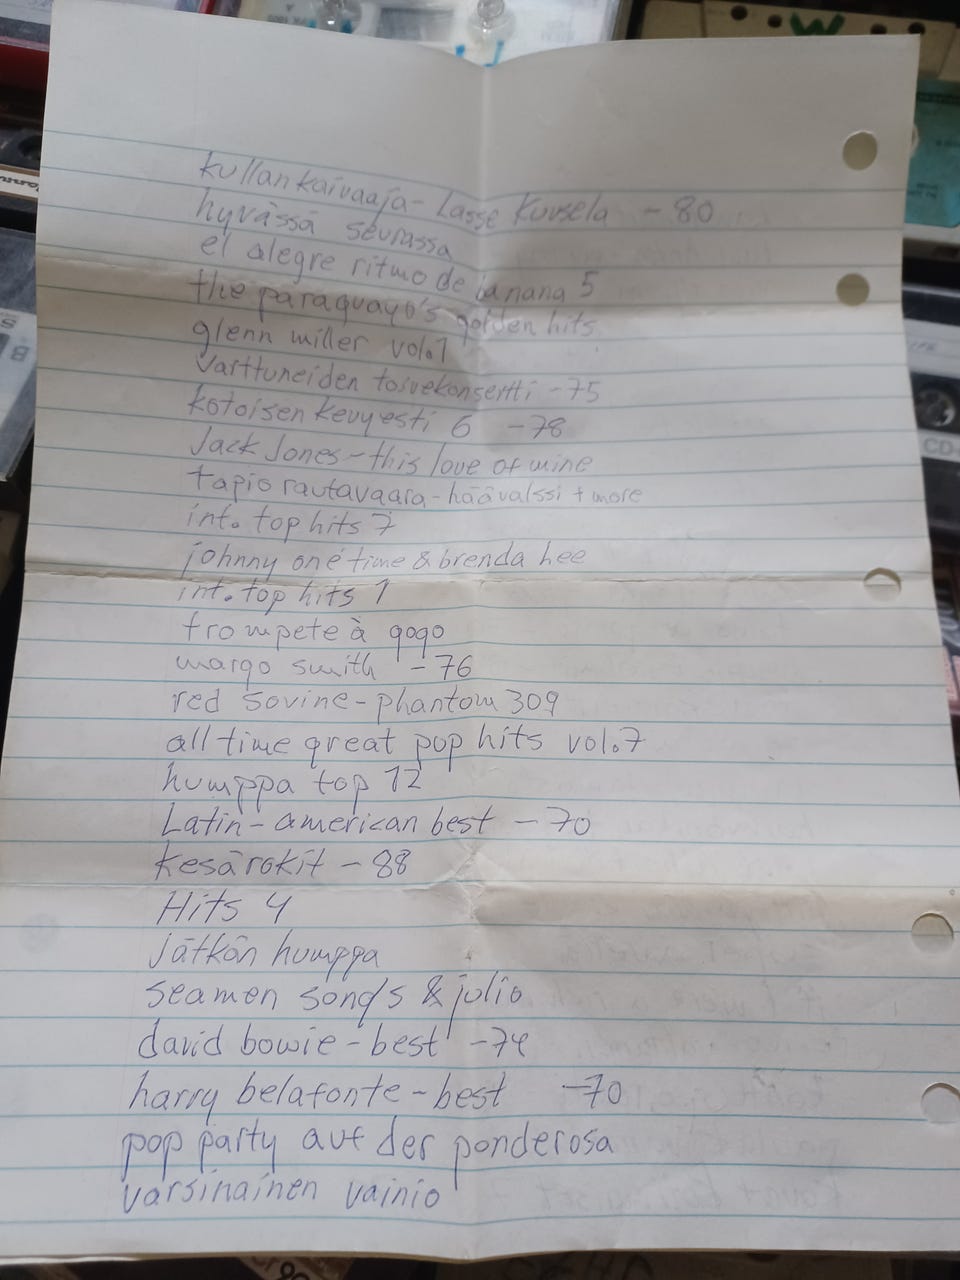 kullankaivaaja - Lasse Kuusela - 80
hyvässä seurassa
el alegre ritmo de banana 5
the paraquayo's golden hits
glenn miller vol.1
varttuneiden toivekonsertti - 75
kotoisen kevyesti 6 - 78
Jack Jones - this love of mine
tapio rautavaara - häävalssi + more
int. top hits 7
johnny one time & brenda hee
int. top hits 1
trompete à gogo
margo smith - 76
red sovine - phantom 309
all time great pop hits vol.7
humppa top 12
Latin-american best - 70
kesärokit - 88
Hits 4
Jätkän humppa
seamen songs & julio
david bowie - best - 74
harry belafonte - best - 70
pop party auf der ponderosa
varsinainen vainio